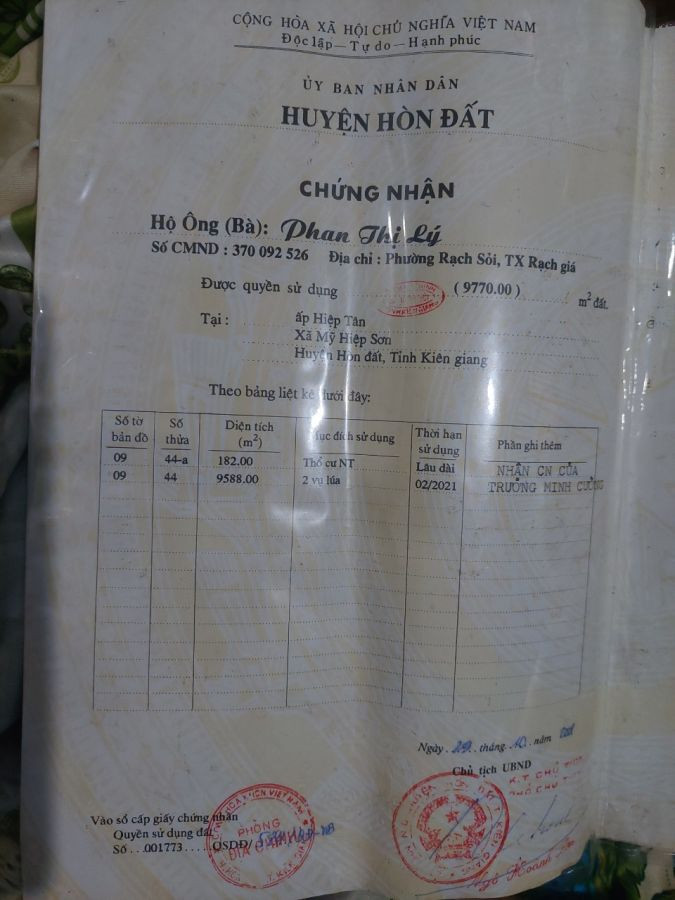 CỘNG HÒA XÃ HỘI CHỦ NGHĨA VIỆT NAM
Độc lập - Tự do - Hạnh phúc
ỦY BAN NHÂN DÂN
HUYỆN HÒN ĐẤT
CHỨNG NHẬN
Hộ Ông (Bà): Phan Thị Lý
Số CMND : 370 092 526 Địa chỉ : Phường Rạch Sỏi, TX Rạch giá
Được quyền sử dụng ( 9770.00 ) m² đất.
Tại : ấp Hiệp Tân
Xã Mỹ Hiệp Sơn
Huyện Hòn đất, Tỉnh Kiên giang
Theo bảng liệt kê dưới đây:
Số tờ bản đồ Số thửa Diện tích (m²) Mục đích sử dụng Thời hạn sử dụng Phần ghi thêm
09 44-a 182.00 Thổ cư NT Lâu dài NHẬN CN CỦA
09 44 9588.00 2 vụ lúa 02/2021 TRƯƠNG MINH CƯỜNG
Ngày 29 tháng 10 năm
Chủ tịch UBND
K.T CHỦ TỊCH
PHÓ CHỦ TỊCH
Vào sổ cấp giấy chứng nhận
Quyền sử dụng đất
Số 001773 QSDĐ/
PHÒNG
ĐỊA CHÍNH